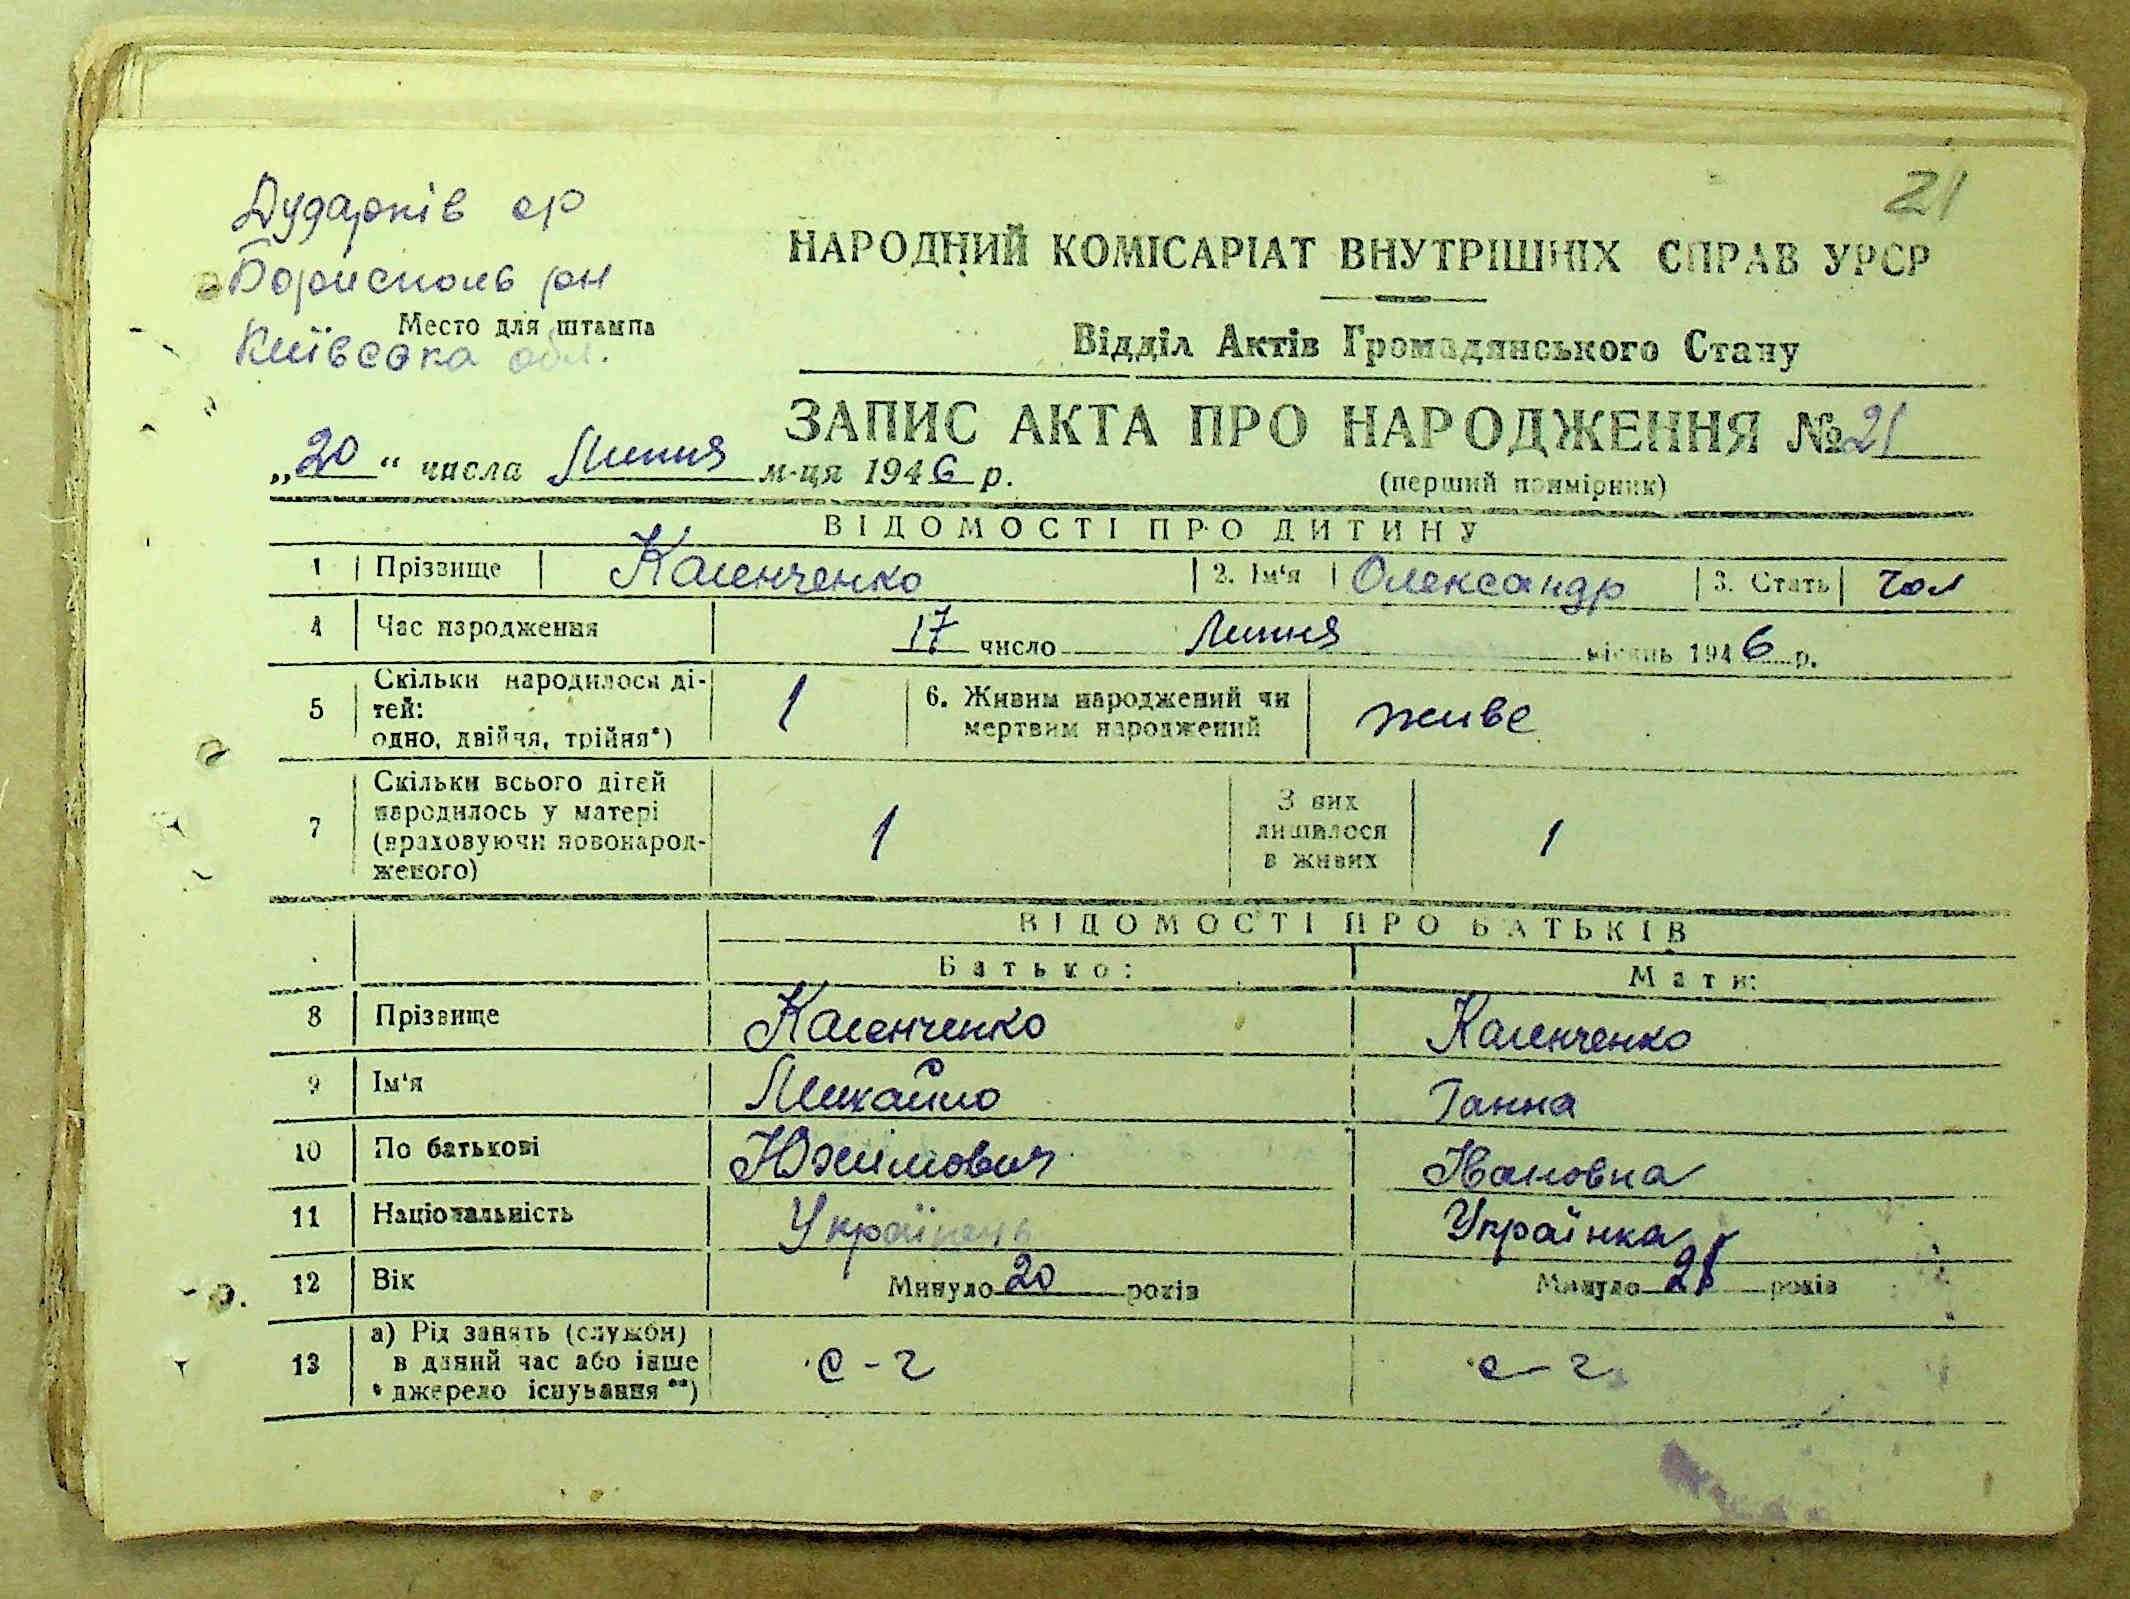 21
Дударків ср
Борисполь рн
Место для штампа
Київська обл.
НАРОДНИЙ КОМІСАРІАТ ВНУТРІШНІХ СПРАВ УРСР
Відділ Актів Громадянського Стану
ЗАПИС АКТА ПРО НАРОДЖЕННЯ №21
„20“ числа Липня м-ця 1946 р.
(перший примірник)
ВІДОМОСТІ ПРО ДИТИНУ
1 Прізвище Каленченко 2. Ім'я Олександр 3. Стать чол
4 Час народження 17 число Липня місяць 1946 р.
5 Скільки народилося ді-
тей:
одно, двійня, трійня*) 1 6. Живим народжений чи
мертвим народжений живе
7 Скільки всього дітей
народилось у матері
(враховуючи новонарод-
женого) 1 З них
лишилося
в живих 1
ВІДОМОСТІ ПРО БАТЬКІВ
Батько: Мати:
8 Прізвище Каленченко Каленченко
9 Ім'я Михайло Ганна
10 По батькові Юхимович Івановна
11 Національність Українець Українка
12 Вік Минуло 20 років Минуло років
13 а) Рід занять (служби)
в даний час або інше
джерело існування **) с-г с-г